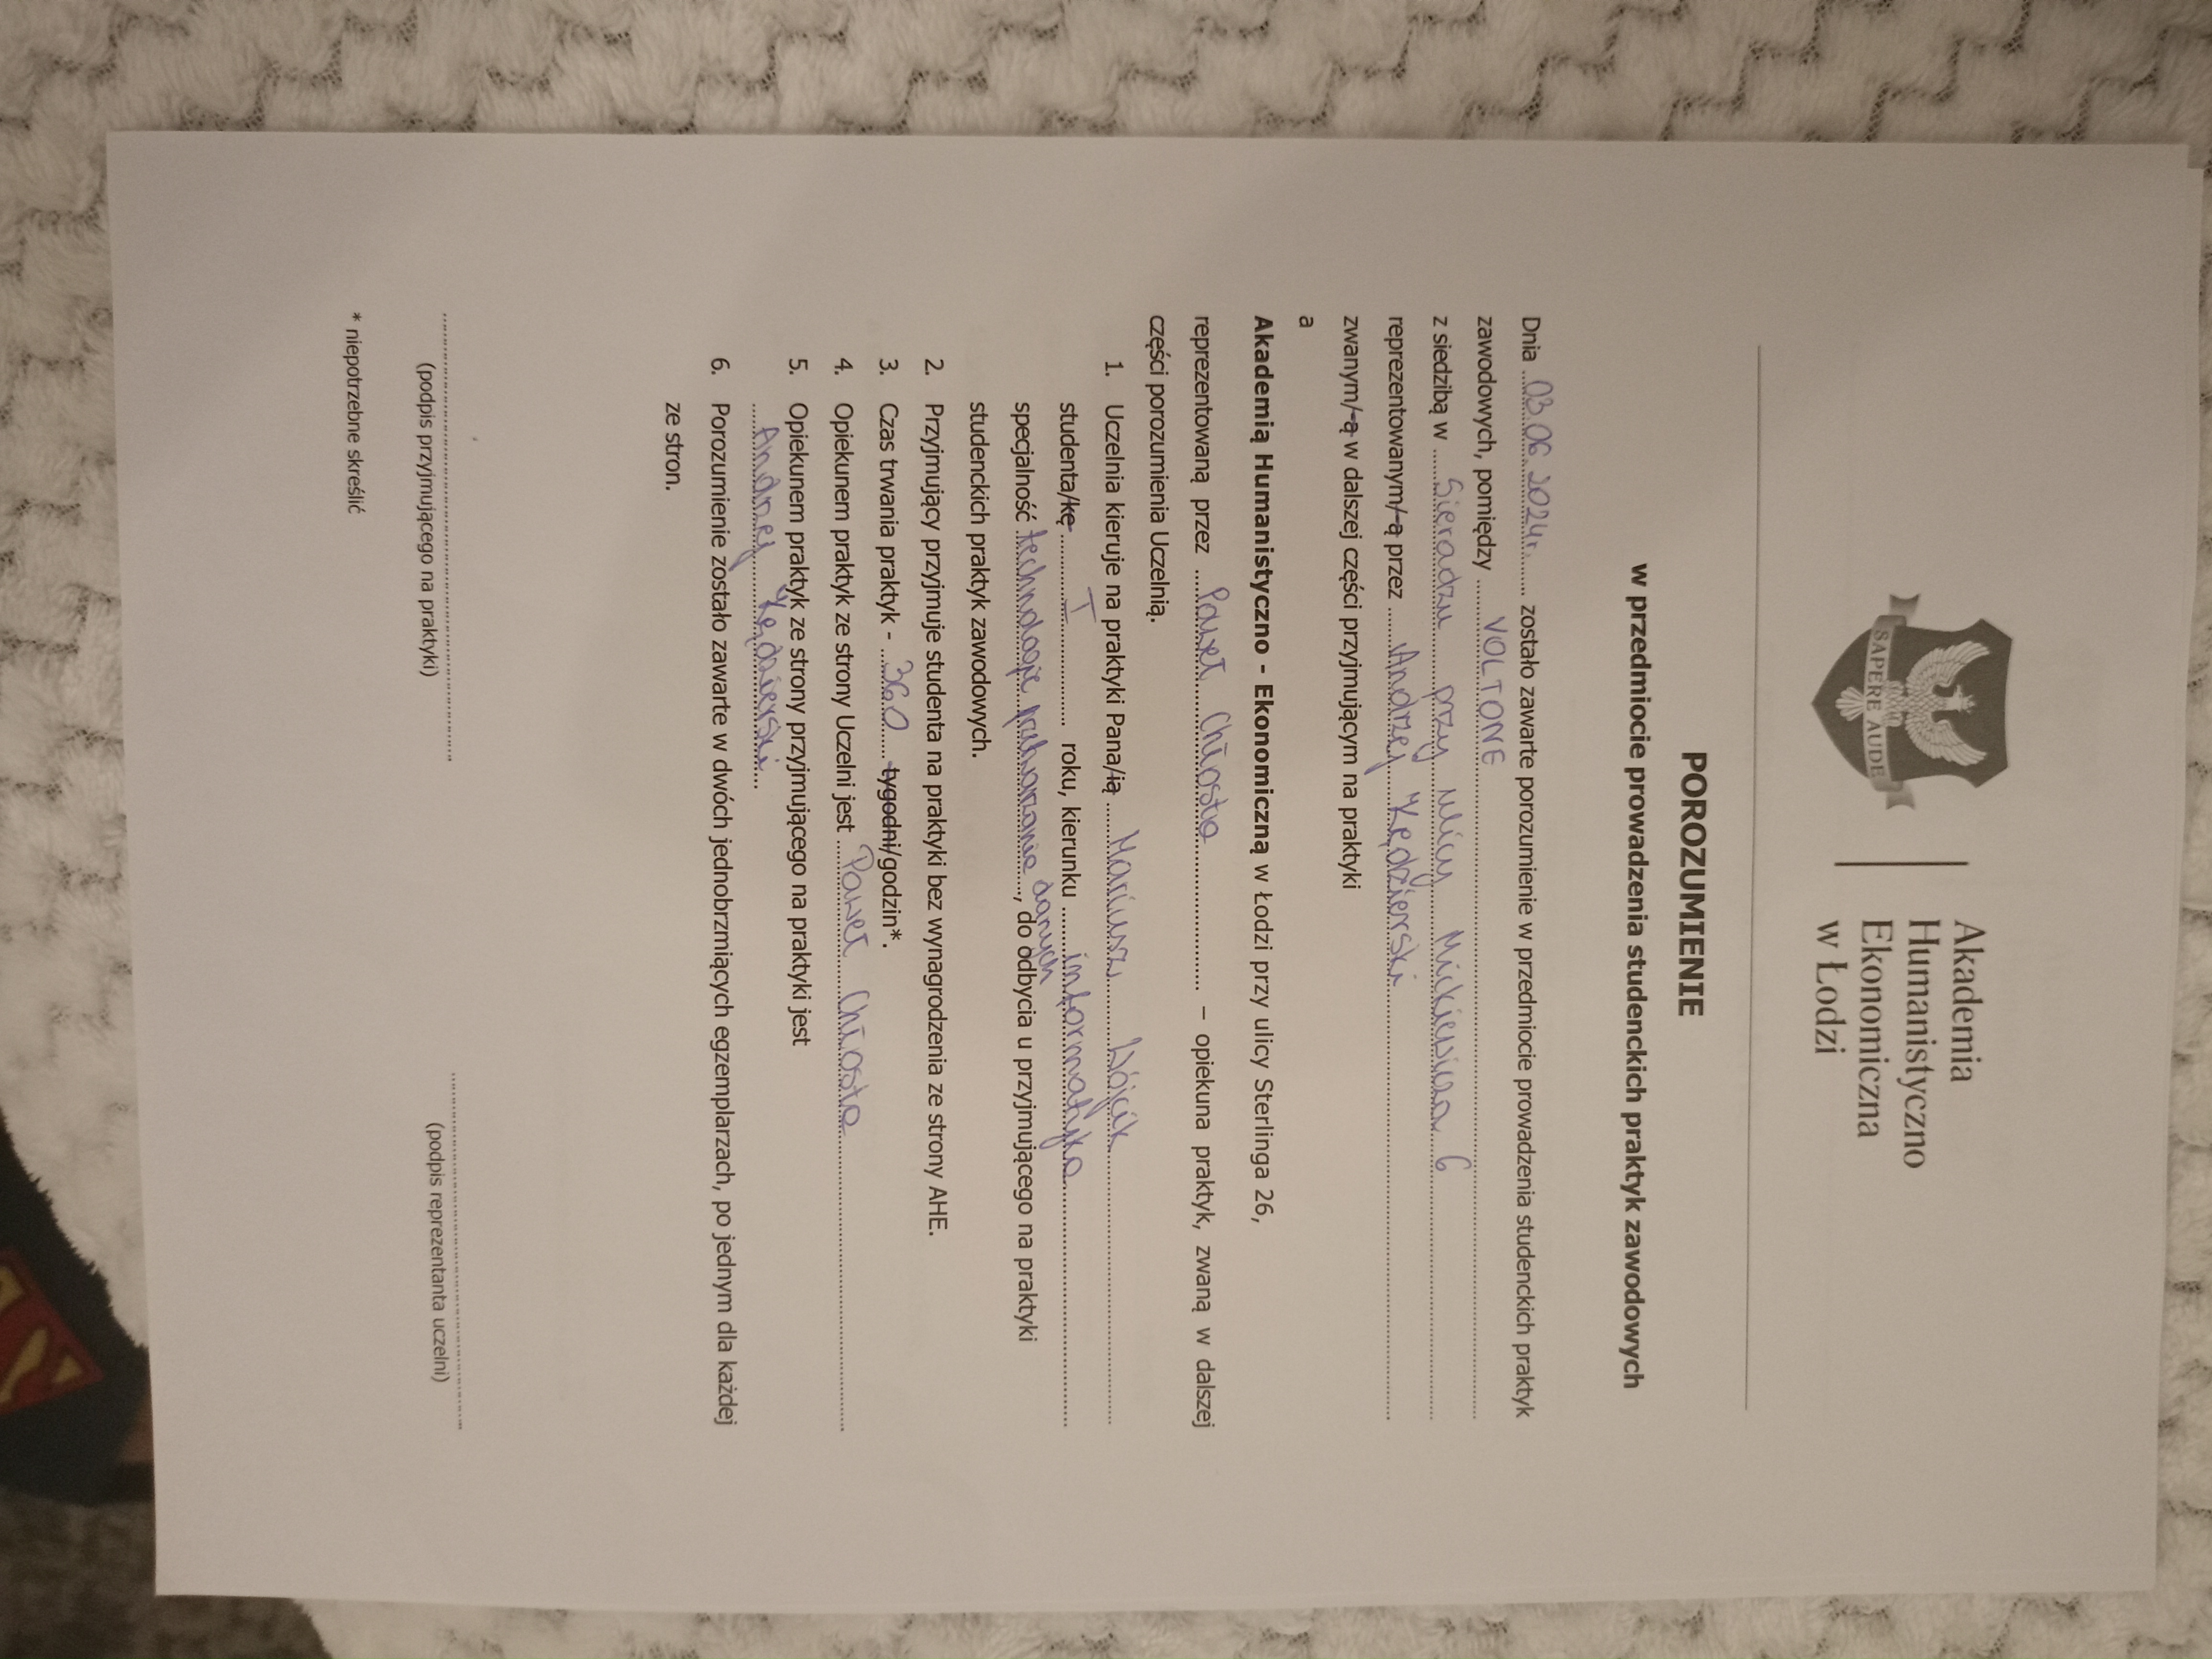 SAPERE AUDE
Akademia
Humanistyczno
Ekonomiczna
w Łodzi
POROZUMIENIE
w przedmiocie prowadzenia studenckich praktyk zawodowych
Dnia ...03.06.2024r....... zostało zawarte porozumienie w przedmiocie prowadzenia studenckich praktyk
zawodowych, pomiędzy ........VOLTONE........
z siedzibą w ......Sieradzu przy ulicy Mickiewicza 6......
reprezentowanym/-ą przez ......Andrzej Kędzierski......
zwanym/-ą w dalszej części przyjmującym na praktyki
a
Akademią Humanistyczno - Ekonomiczną w Łodzi przy ulicy Sterlinga 26,
reprezentowaną przez ....Paweł Chłosta.................... – opiekuna praktyk, zwaną w dalszej
części porozumienia Uczelnią.
1. Uczelnia kieruje na praktyki Pana/ią .....Mariusz Wójcik.....
studenta/kę ..........I.............. roku, kierunku ........informatyka........
specjalność ..technologie przetwarzania danych..., do odbycia u przyjmującego na praktyki
studenckich praktyk zawodowych.
2. Przyjmujący przyjmuje studenta na praktyki bez wynagrodzenia ze strony AHE.
3. Czas trwania praktyk - ....360..... tygodni/godzin*.
4. Opiekunem praktyk ze strony Uczelni jest ....Paweł Chłosta....
5. Opiekunem praktyk ze strony przyjmującego na praktyki jest
....Andrzej Kędzierski....
6. Porozumienie zostało zawarte w dwóch jednobrzmiących egzemplarzach, po jednym dla każdej
ze stron.
(podpis przyjmującego na praktyki) (podpis reprezentanta uczelni)
* niepotrzebne skreślić